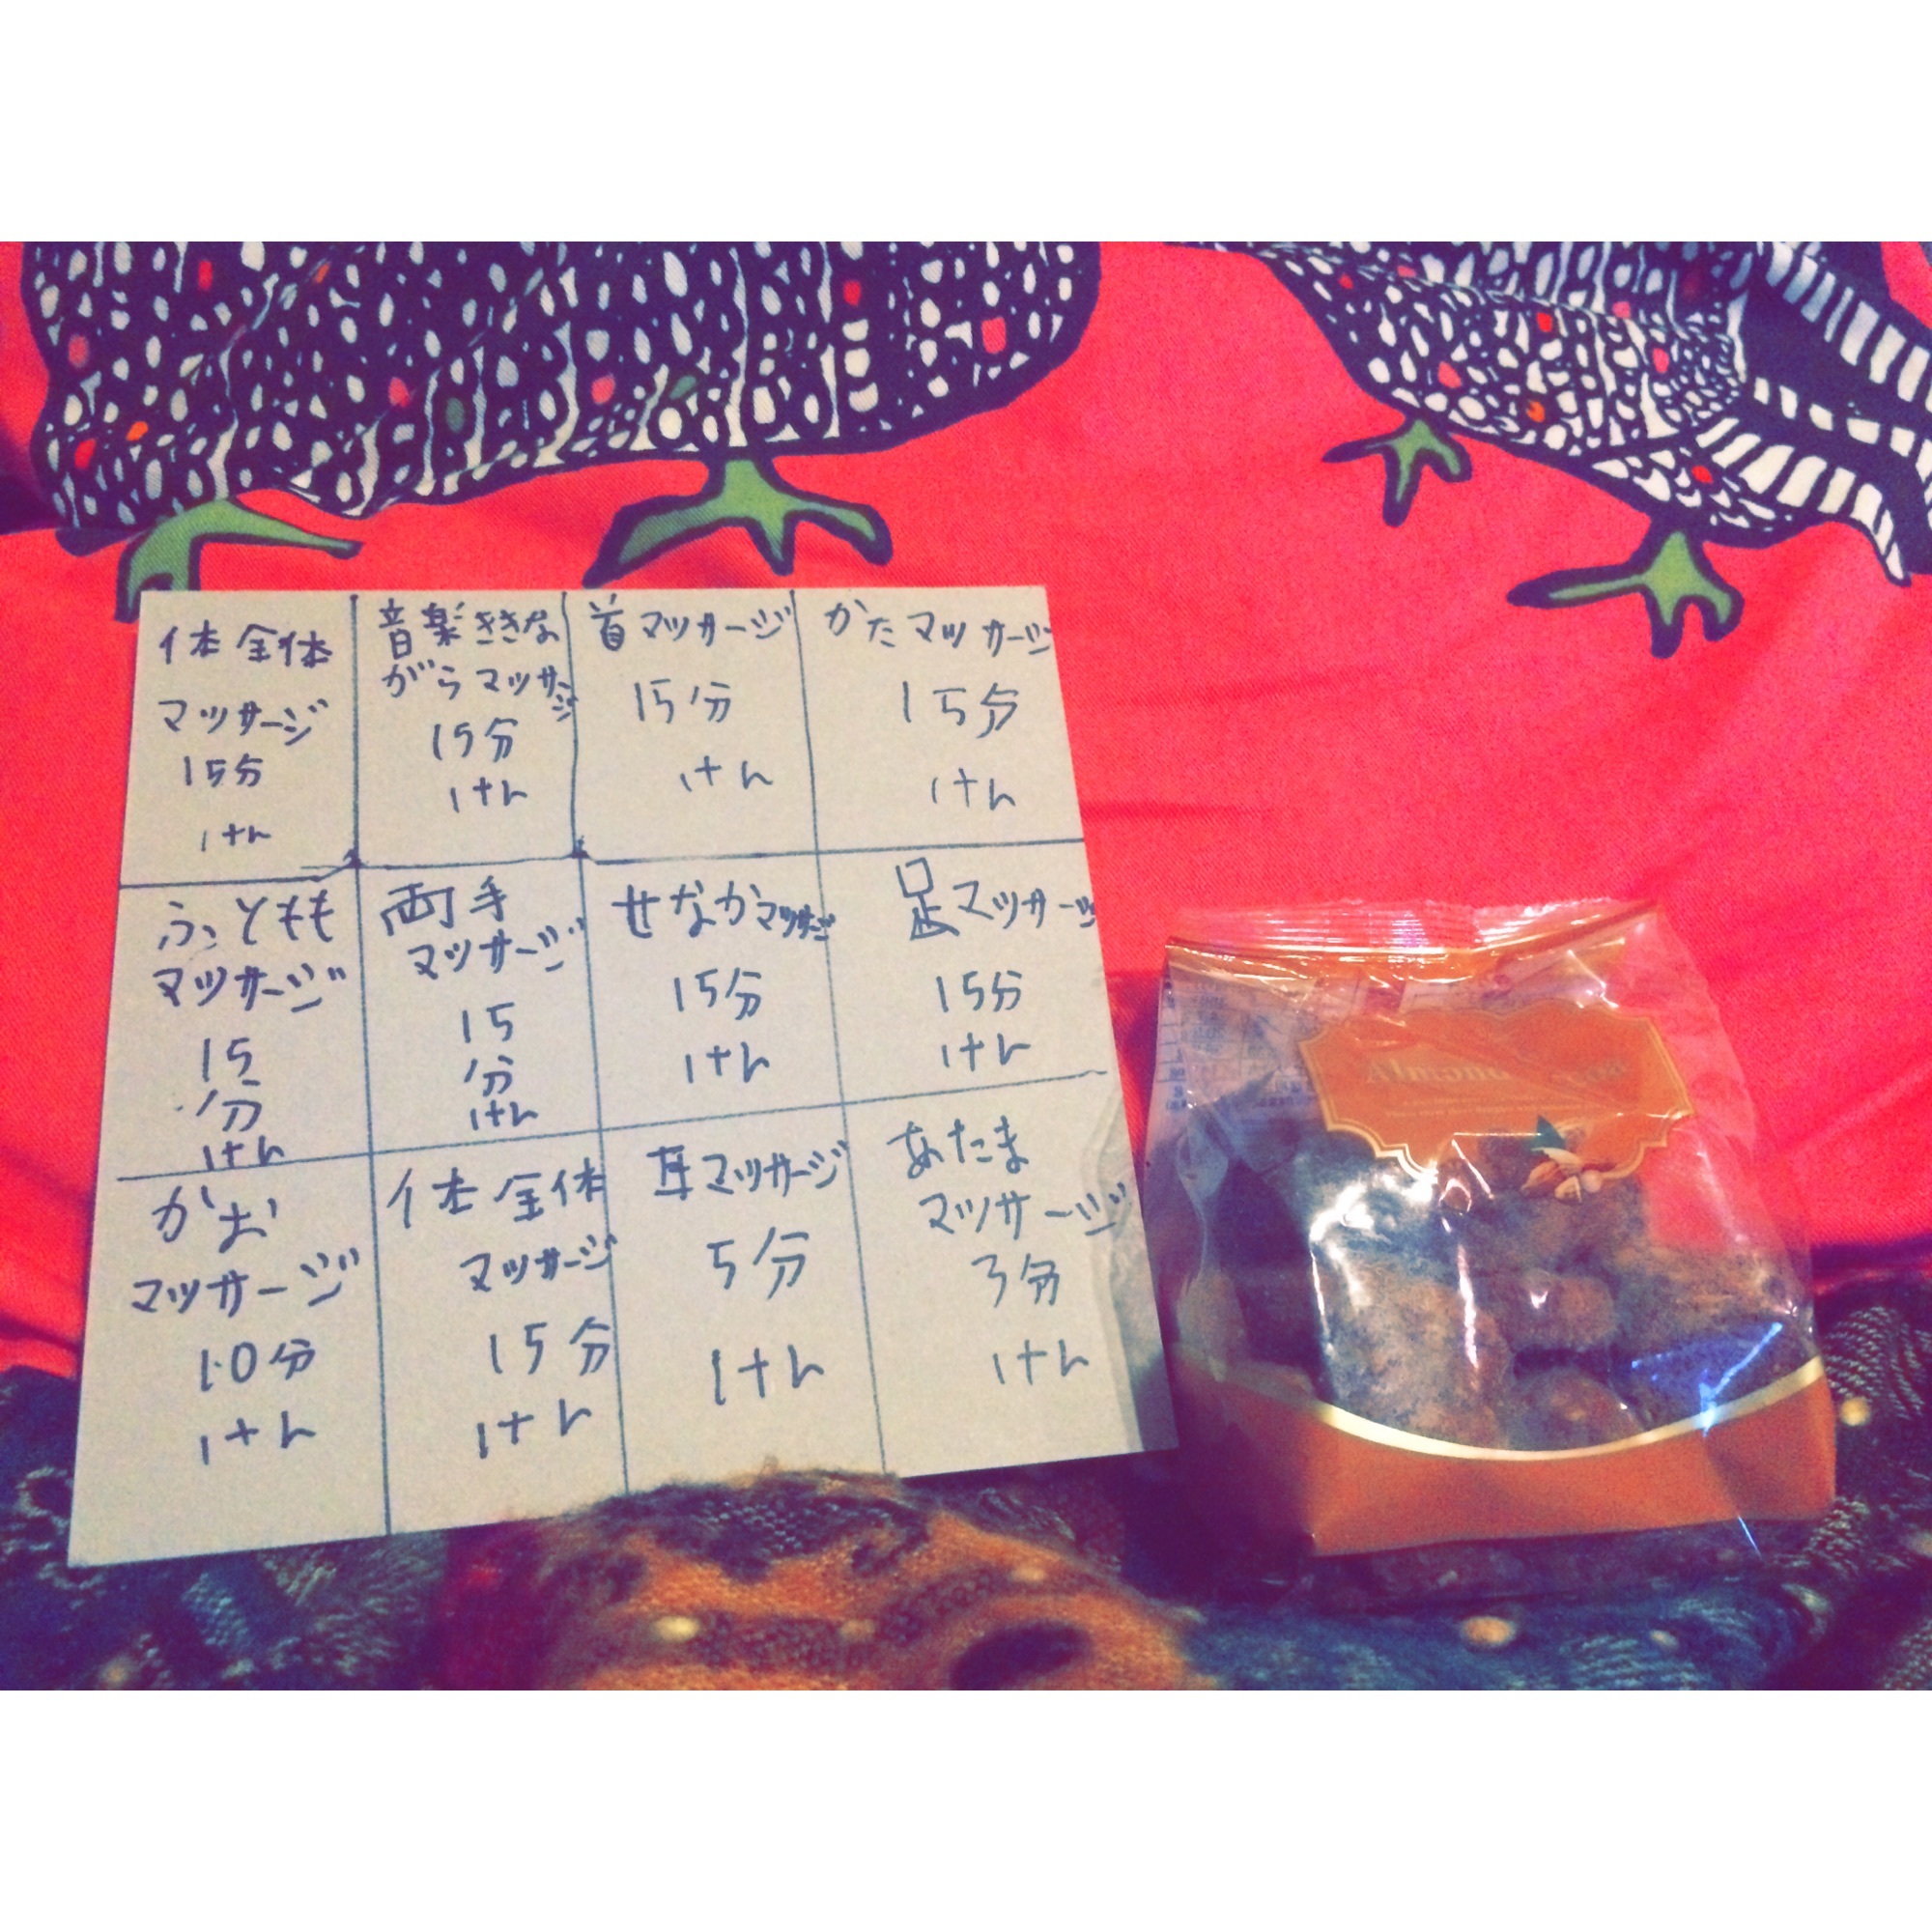 体全体
マッサージ
15分
けん
音楽ききな
がらマッサージ
15分
けん
首マッサージ
15分
けん
かたマッサージ
15分
けん
ふともも
マッサージ
15
分
けん
両手
マッサージ
15
分
けん
せなかマッサージ
15分
けん
足マッサージ
15分
けん
かお
マッサージ
10分
けん
体全体
マッサージ
15分
けん
耳マッサージ
5分
けん
あたま
マッサージ
3分
けん
Almond